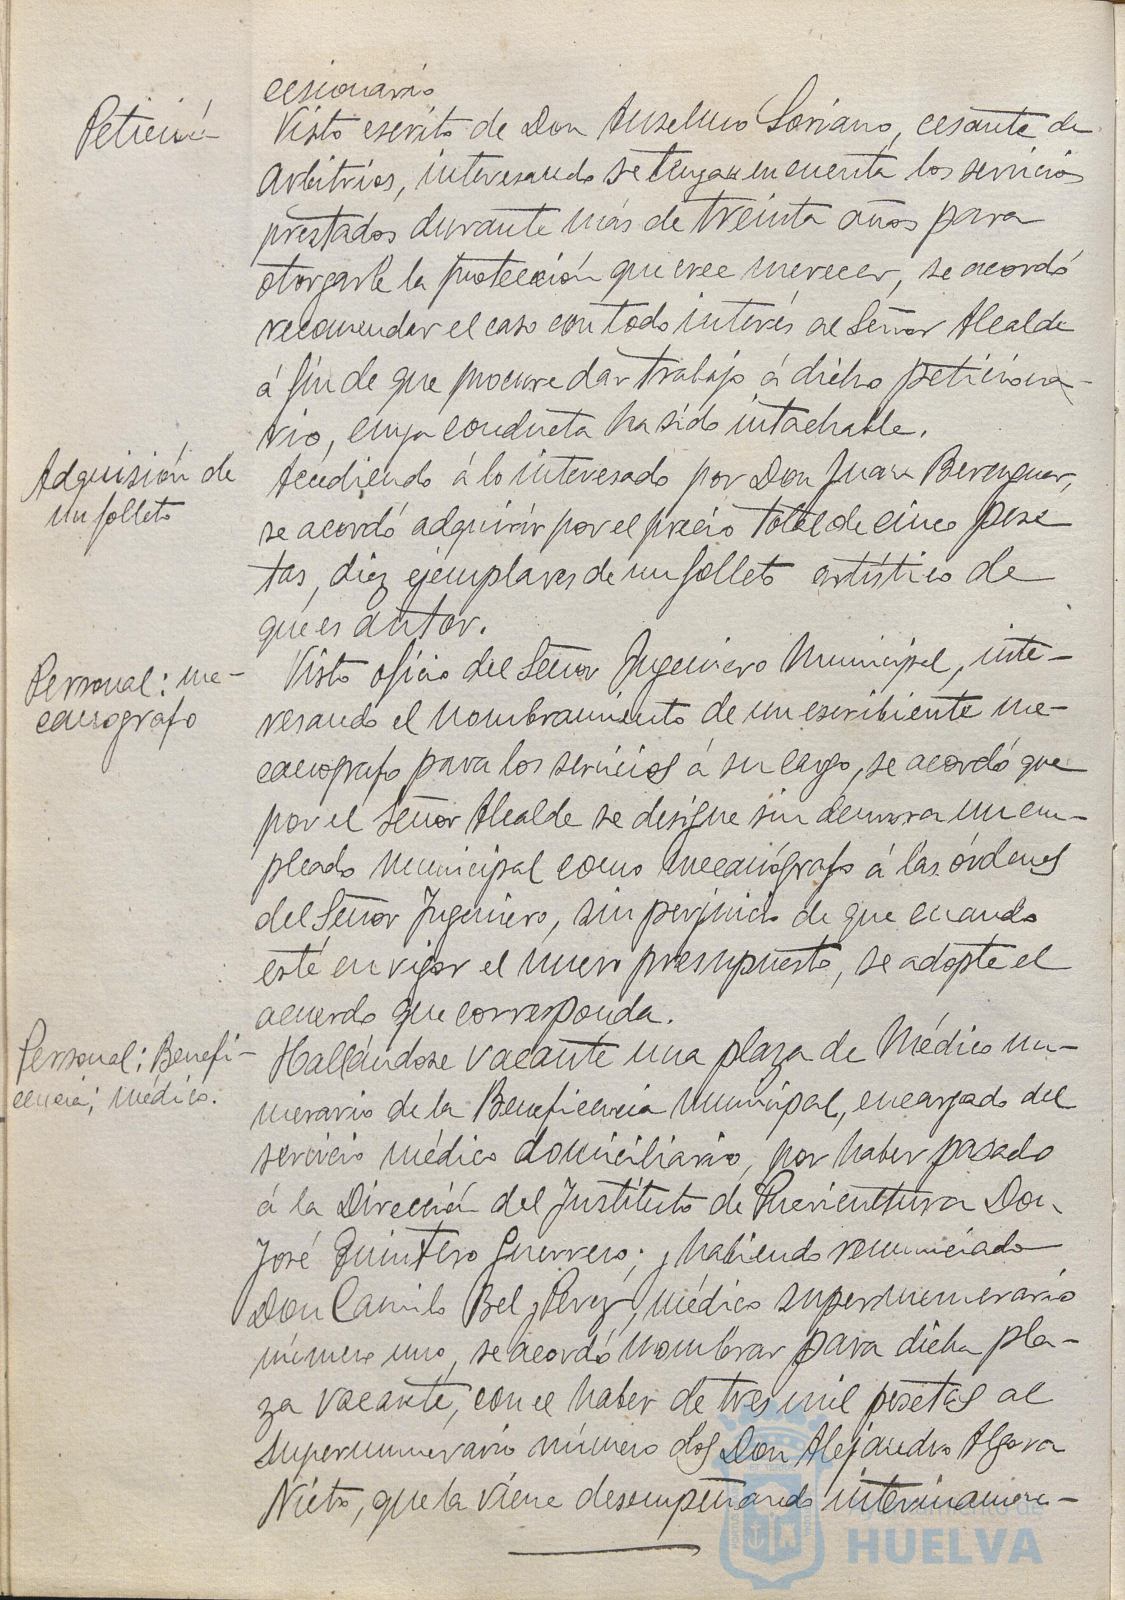 cesionario
Petición
Visto escrito de Don Anselmo Soriano, cesante de
Arbitrios, interesando se tengan en cuenta los servicios
prestados durante más de treinta años para
otorgarle la protección que cree merecer, se acordó
recomendar el caso con todo interés al Señor Alcalde
á fin de que procure dar trabajo á dicho peticiona-
rio, cuya conducta ha sido intachable.
Adquisión de
un folleto
Accediendo á lo interesado por Don Juan Berenguer,
se acordó adquirir por el precio total de cinco pese
tas, diez ejemplares de un folleto artístico de
que es autor.
Personal: me-
canografo
Visto oficio del Señor Ingeniero Municipal, inte-
resando el nombramiento de un escribiente me-
canografo para los servicios á su cargo, se acordó que
por el Señor Alcalde se designe sin demora un em-
pleado municipal como mecanógrafo á las órdenes
del Señor Ingeniero, sin perjuicio de que cuando
esté en vigor el nuevo presupuesto, se adopte el
acuerdo que corresponda.
Personal: Benefi-
cencia; médico.
Hallándose vacante una plaza de Médico nu-
merario de la Beneficencia municipal, encargado del
servicio médico domiciliario, por haber pasado
á la Dirección del Instituto de Puericultura Don
José Quintero Guerrero; y habiendo renunciado
Don Camilo Bel y Perez, médico supernumerario
número uno, se acordó nombrar para dicha pla-
za vacante, con el haber de tres mil pesetas al
supernumerario número dos Don Alejandro Algora
Nieto, que la viene desempeñando interinamen-
Ayuntamiento de
HUELVA